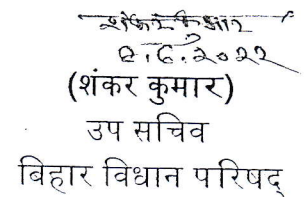 शंकर कुमार
8.6.2022
(शंकर कुमार)
उप सचिव
बिहार विधान परिषद्